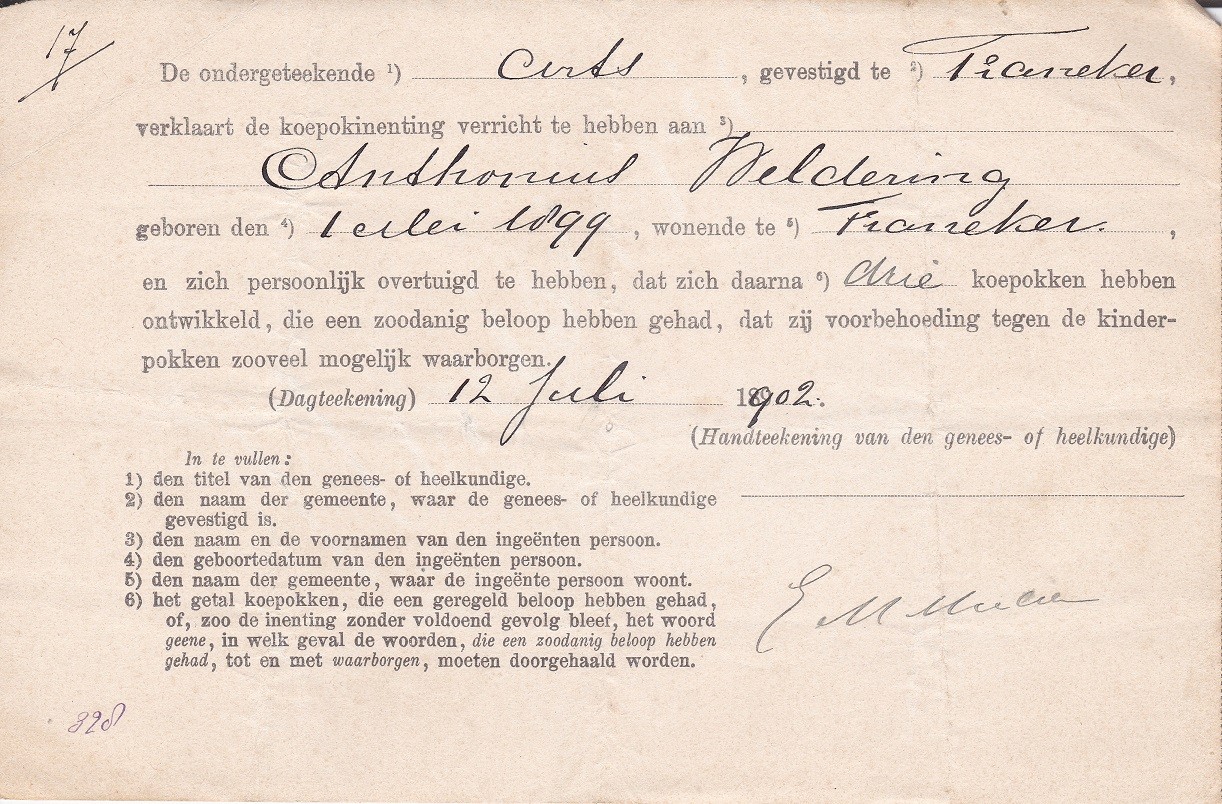 17
De ondergeteekende ¹) Arts, gevestigd te ²) Franeker,
verklaart de koepokinenting verricht te hebben aan ³)
Anthonius Weldering
geboren den ⁴) 1 Mei 1899, wonende te ⁵) Franeker.,
en zich persoonlijk overtuigd te hebben, dat zich daarna ⁶) drie koepokken hebben
ontwikkeld, die een zoodanig beloop hebben gehad, dat zij voorbehoeding tegen de kinder-
pokken zooveel mogelijk waarborgen.
(Dagteekening) 12 Juli 1902.
(Handteekening van den genees- of heelkundige)
In te vullen:
1) den titel van den genees- of heelkundige.
2) den naam der gemeente, waar de genees- of heelkundige
gevestigd is.
3) den naam en de voornamen van den ingeënten persoon.
4) den geboortedatum van den ingeënten persoon.
5) den naam der gemeente, waar de ingeënte persoon woont.
6) het getal koepokken, die een geregeld beloop hebben gehad,
of, zoo de inenting zonder voldoend gevolg bleef, het woord
geene, in welk geval de woorden, die een zoodanig beloop hebben
gehad, tot en met waarborgen, moeten doorgehaald worden.
328